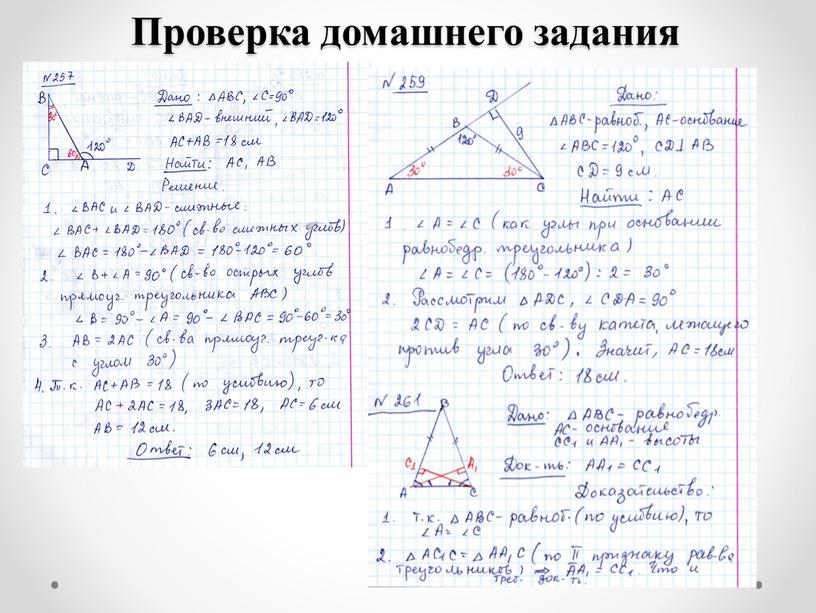 Проверка домашнего задания
N 257
Дано: △ABC, ∠C=90°
∠BAD - внешний, ∠BAD=120°
AC+AB=18 см
Найти: AC, AB
B
30°
C
60°
A
120°
D
Решение.
1. ∠BAC и ∠BAD - смежные.
∠BAC + ∠BAD = 180° (св-во смежных углов)
∠BAC = 180° - ∠BAD = 180° - 120° = 60°
2. ∠B + ∠A = 90° (св-во острых углов
прямоуг. треугольника ABC)
∠B = 90° - ∠A = 90° - ∠BAC = 90° - 60° = 30°
3. AB = 2AC (св-ва прямоуг. треуг-ка
с углом 30°)
4. Т.к. AC+AB = 18 (по условию), то
AC + 2AC = 18, 3AC = 18, AC = 6 см
AB = 12 см.
Ответ: 6 см, 12 см
N 259
D
B
120°
9
30°
30°
A
C
Дано:
△ABC - равноб., AC - основание
∠ABC = 120°, CD⊥AB
CD = 9 см.
Найти: AC
1 ∠A = ∠C (как углы при основании
равнобедр. треугольника)
∠A = ∠C = (180° - 120°) : 2 = 30°
2. Рассмотрим △ADC, ∠CDA = 90°
2CD = AC (по св-ву катета, лежащего
против угла 30°). Значит, AC = 18см
Ответ: 18 см.
N 261
B
C1
A1
A
C
Дано: △ABC - равнобедр.
AC - основание
CC1 и AA1 - высоты
Док-ть: AA1 = CC1
Доказательство:
1. т.к. △ABC - равноб. (по условию), то
∠A = ∠C
2. △AC1C = △AA1C (по II признаку рав-ва
треугольников) ⇒ AA1 = CC1. Что и
треб. док-ть.